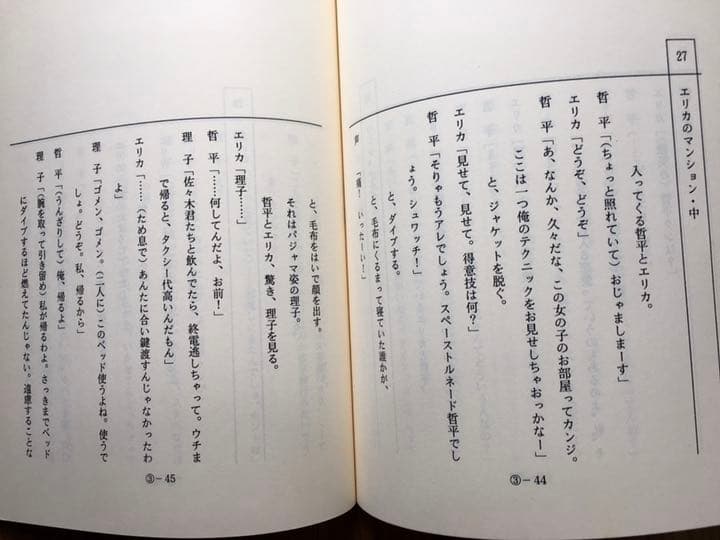 27
エリカのマンション・中
入ってくる哲平とエリカ。
哲平「(ちょっと照れていて)おじゃましまーす」
エリカ「どうぞ、どうぞ」
哲平「あ、なんか、久々だな、この女の子のお部屋ってカンジ。
ここは一つ俺のテクニックをお見せしちゃおっかなー」
と、ジャケットを脱ぐ。
エリカ「見せて、見せて。得意技は何?」
哲平「そりゃもうアレでしょう。スペーストルネード哲平でし
ょう。シュワッチ!」
と、ダイブする。
と、毛布にくるまって寝ていた誰かが、
「痛! いったーい!」
③-44
と、毛布をはいで顔を出す。
それはパジャマ姿の理子。
哲平とエリカ、驚き、理子を見る。
エリカ「理子……」
哲平「……何してんだよ、お前!」
理子「佐々木君たちと飲んでたら、終電逃しちゃって。ウチま
で帰ると、タクシー代高いんだもん」
エリカ「……(ため息で)あんたに合い鍵渡すんじゃなかったわ
よ」
理子「ゴメン、ゴメン。(二人に)このベッド使うよね。使うで
しょ。どうぞ。私、帰るから」
哲平「(うんざりして)俺、帰るよ」
理子「(腕を取って引き留め)私が帰るわよ。さっきまでベッド
にダイブするほど燃えてたんじゃない。遠慮することな
③-45